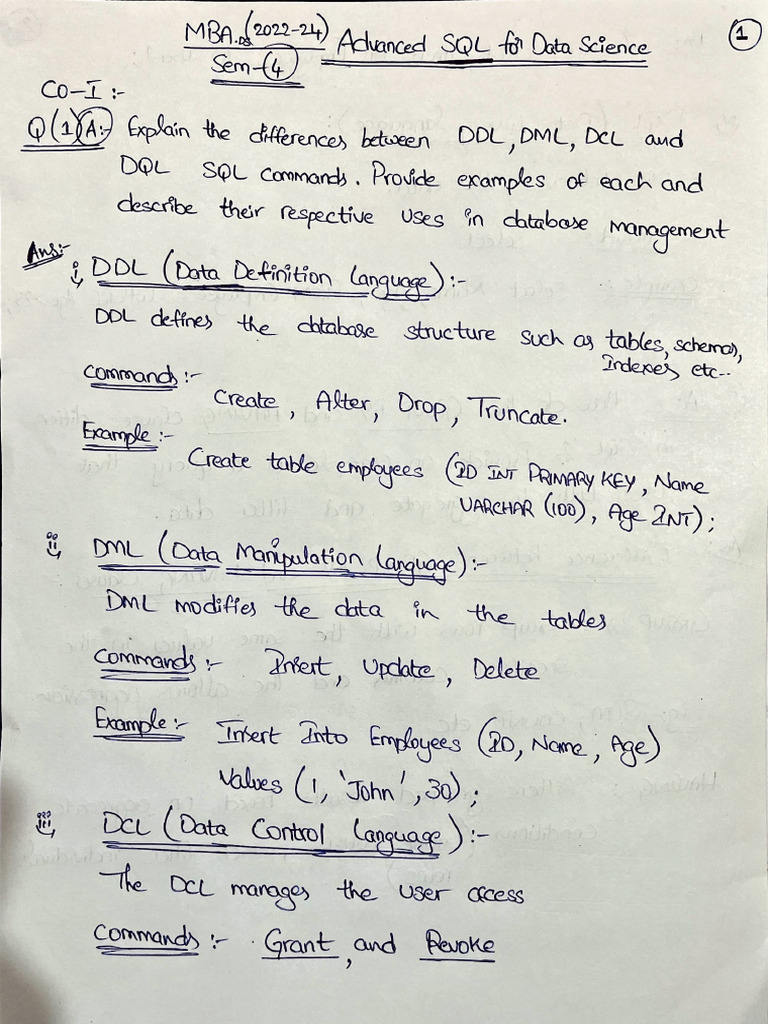 MBA.DS (2022-24) Advanced SQL for Data Science 1
Sem-(4)
CO-I :-
Q(1)(A:- Explain the differences between DDL, DML, DCL and
DQL SQL commands. Provide examples of each and
describe their respective uses in database management
Ans:-
i) DDL (Data Definition Language) :-
DDL defines the database structure such as tables, schemas,
Indexes etc..
Commands :-
Create, Alter, Drop, Truncate.
Example :-
Create table employees (ID INT PRIMARY KEY, Name
VARCHAR (100), Age INT);
ii) DML (Data Manipulation Language) :-
DML modifies the data in the tables
Commands :- Insert, Update, Delete
Example :- Insert Into Employees (ID, Name, Age)
Values (1, 'John', 30);
iii) DCL (Data Control Language) :-
The DCL manages the user access
Commands :- Grant, and Revoke